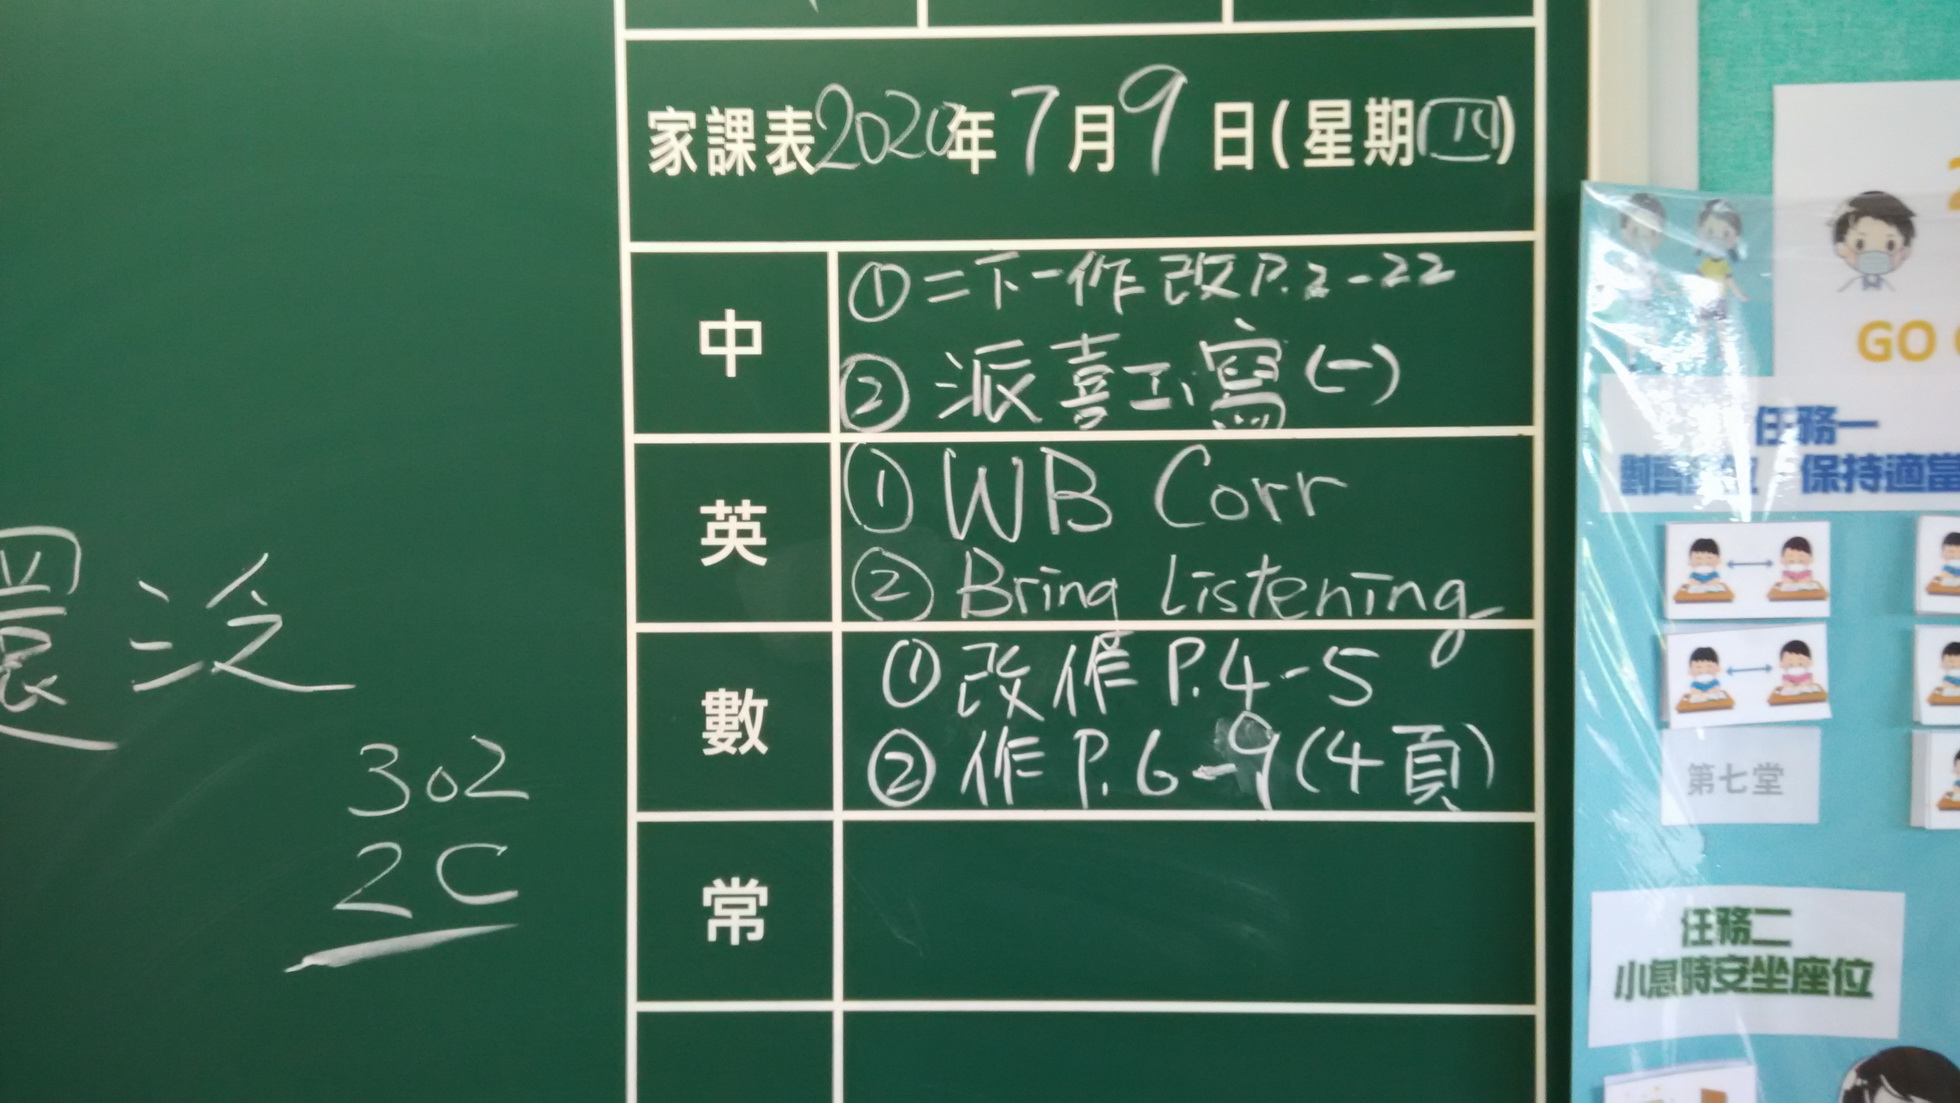 家課表2020年7月9日(星期四)
中
①二下一作改P.2-22
②派喜工寫(一)
英
①WB Corr
②Bring Listening
數
①改作P.4-5
②作P.6-9(4頁)
常
還没
302
2C
GO
任務一
保持適當
第七堂
任務二
小息時安坐座位